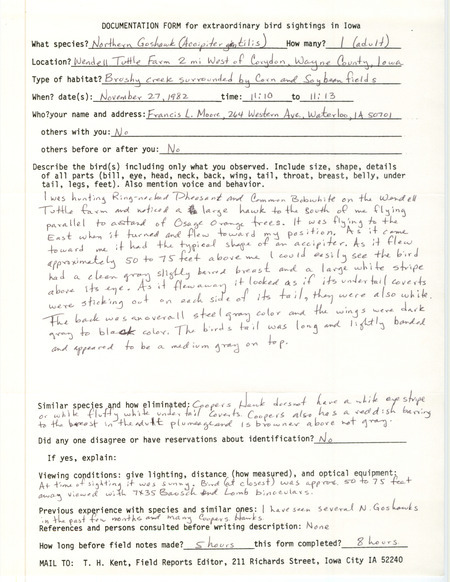 DOCUMENTATION FORM for extraordinary bird sightings in Iowa
What species? Northern Goshawk (Accipiter gentilis) How many? 1 (adult)
Location? Wendell Tuttle Farm 2 mi West of Corydon, Wayne County, Iowa
Type of habitat? Brushy creek surrounded by Corn and Soybean fields
When? date(s): November 27, 1982 time: 11:10 to 11:13
Who? your name and address: Francis L. Moore, 264 Western Ave., Waterloo, IA 50701
others with you: No
others before or after you: No
Describe the bird(s) including only what you observed. Include size, shape, details
of all parts (bill, eye, head, neck, back, wing, tail, throat, breast, belly, under
tail, legs, feet). Also mention voice and behavior.
I was hunting Ring-necked Pheasant and Common Bobwhite on the Wendell
Tuttle farm and noticed a large hawk to the South of me flying
parallel to a stand of Osage Orange trees. It was flying to the
East when it turned and flew toward my position. As it came
toward me it had the typical shape of an accipiter. As it flew
approximately 50 to 75 feet above me I could easily see the bird
had a clean gray slighly barred breast and a large white stripe
above its eye. As it flew away it looked as if its undertail coverts
were sticking out on each side of its tail, they were also white.
The back was an overall steel gray color and the wings were dark
gray to black color. The birds tail was long and lightly banded
and appeared to be a medium gray on top.
Similar species and how eliminated: Coopers Hawk doesnot have a white eye stripe
or white fluffy white undertail coverts. Coopers also has a reddish barring
to the breast in the adult plumage and is browner above not gray.
Did any one disagree or have reservations about identification? No
If yes, explain:
Viewing conditions: give lighting, distance (how measured), and optical equipment:
At time of sighting it was sunny. Bird (at closest) was approx. 50 to 75 feet
away viewed with 7X35 Bausch and Lomb binoculars.
Previous experience with species and similar ones: I have seen several N. Goshawks
in the past few months and many Coopers hawks
References and persons consulted before writing description: None
How long before field notes made? 5 hours this form completed? 8 hours
MAIL TO: T. H. Kent, Field Reports Editor, 211 Richards Street, Iowa City IA 52240